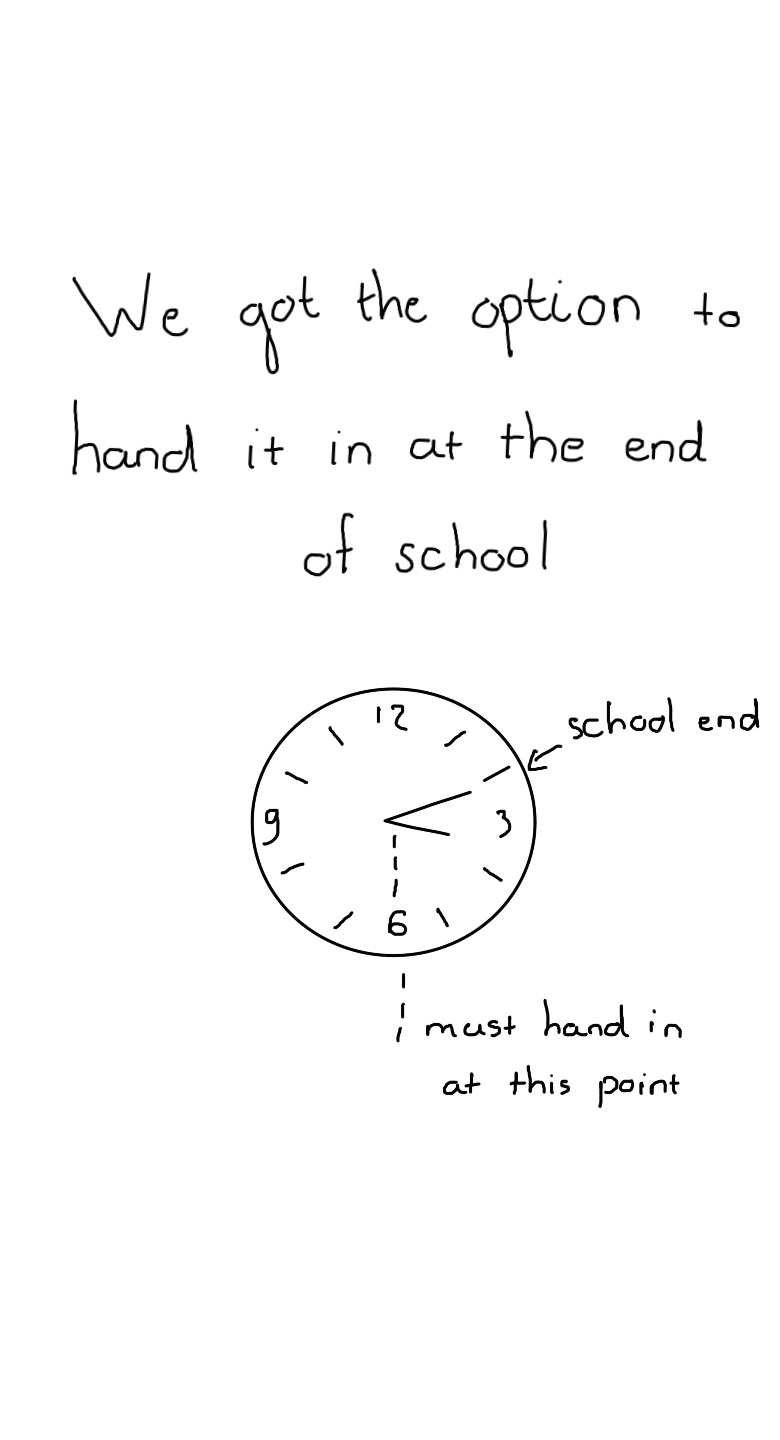 We got the option to
hand it in at the end
of school
school end
12
9
3
6
must hand in
at this point